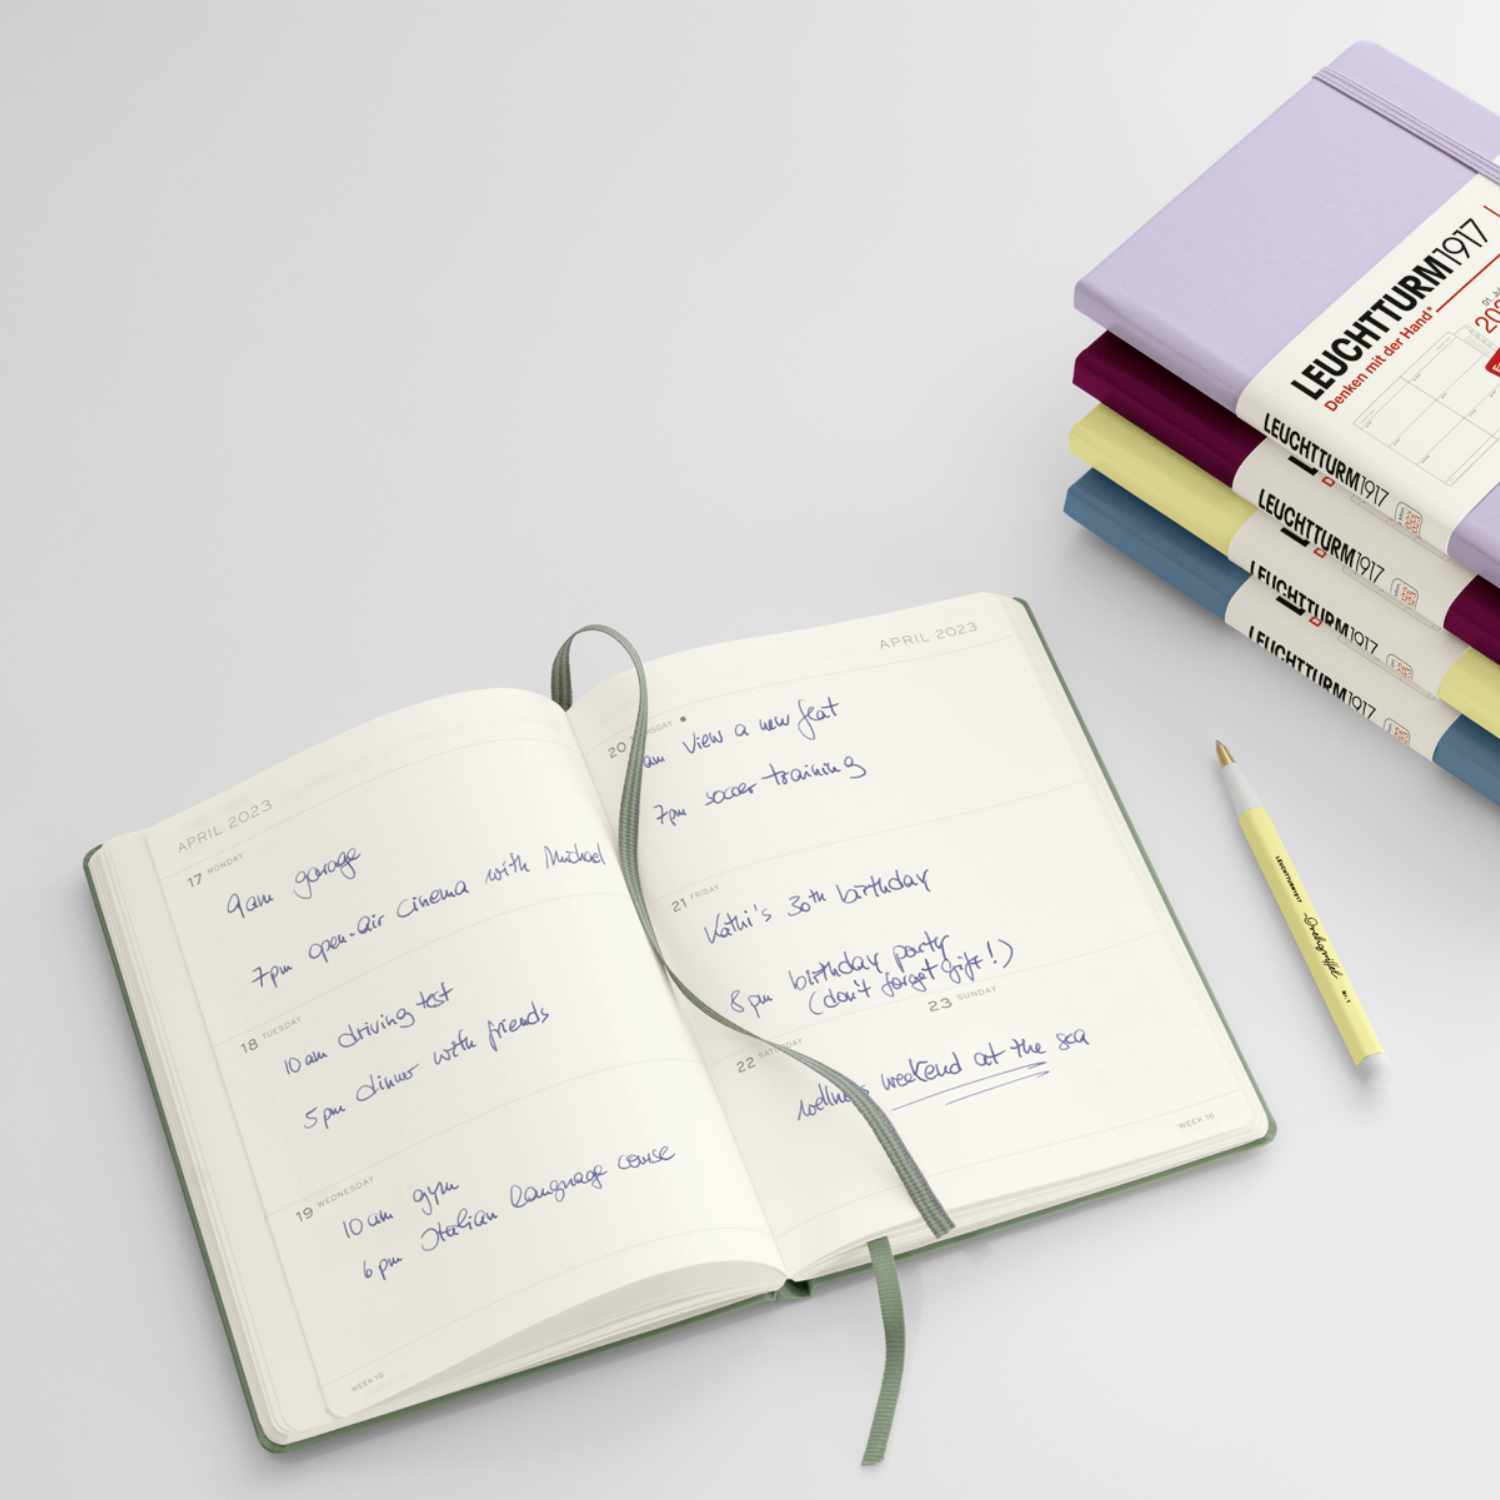 APRIL 2023
17 MONDAY
9am garage
7pm open-air cinema with Michael
18 TUESDAY
10am driving test
5pm dinner with friends
19 WEDNESDAY
10am gym
6pm Italian language course
WEEK 16
APRIL 2023
20
am view a new flat
7pm soccer training
21 FRIDAY
Kathi's 30th birthday
8pm birthday party
(don't forget gift!)
23 SUNDAY
22 SATURDAY
weekend at the sea
WEEK 16
LEUCHTTURM1917
Denken mit der Hand®
LEUCHTTURM1917
LEUCHTTURM1917
LEUCHTTURM1917
LEUCHTTURM1917
LEUCHTTURM1917
Drehgriffel
Nr. 1